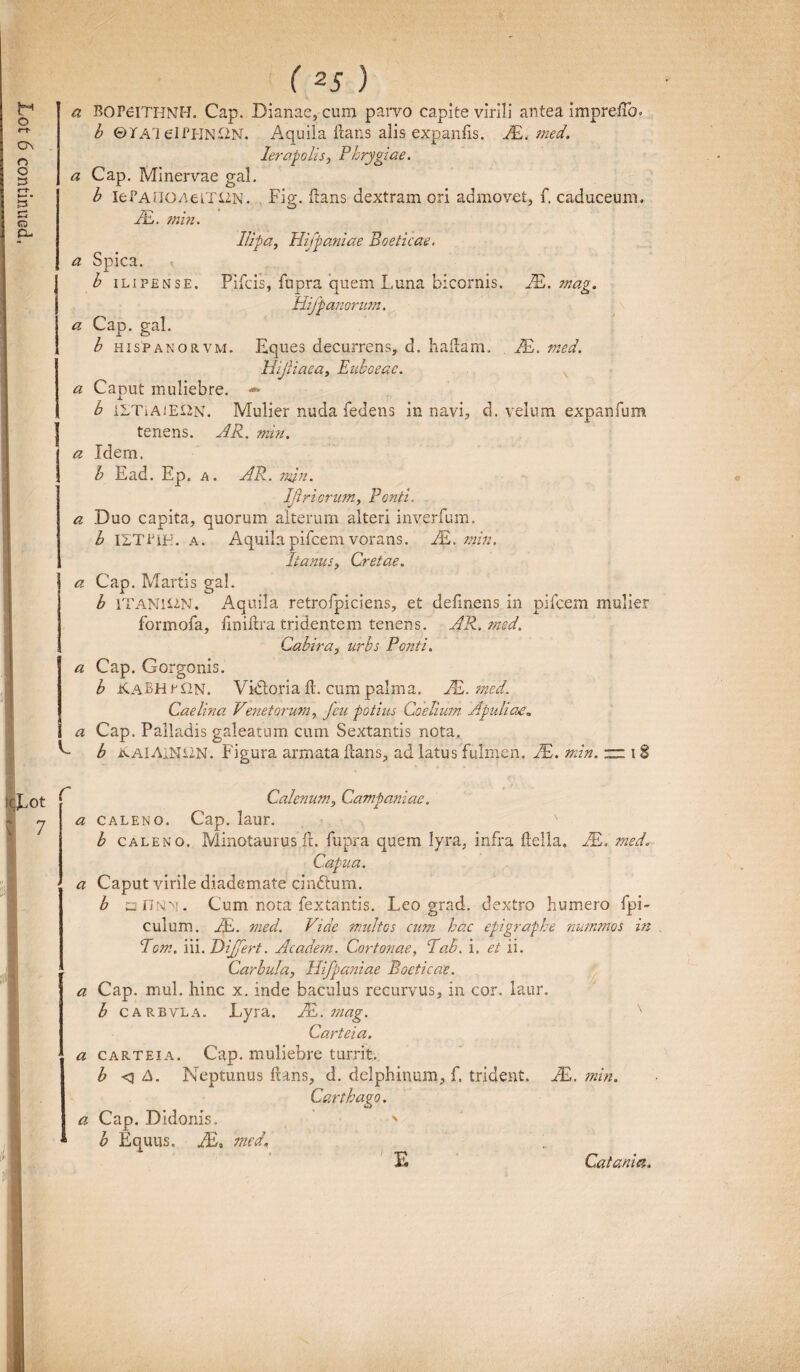 ( 25 )
Lot 6 continued.
a ΒΟΡϾΙΤΗΝΗ. Cap. Dianae, cum parvo capite virili antea impreſſo.
b Aquila ſtans alis expanſis. Æ. med.
Ierapolis, Phrygiae.
a Cap. Minervae gal.
b ΙϵΡΑΠΟΛϵΙΤΩΝ. Fig. ſtans dextram ori admovet, ſ. caduceum.
Æ. min.
Ilipa, Hiſpaniae Boeticae.
a Spica.
b ILIPENSE. Piſcis, ſupra quem Luna bicornis. Æ. mag.
Hiſpanorum.
a Cap. gal.
b HISPANORVM. Eques decurrens, d. haſtam. Æ. med.
Hiſtiaea, Euboeae.
a Caput muliebre.
b ΙΣΤΙΑΙΕΩΝ. Mulier nuda ſedens in navi, d. velum expanſum
tenens. AR. min.
a Idem.
b Ead. Ep. A. AR. min.
Iſtriorum, Ponti.
a Duo capita, quorum alterum alteri inverſum.
b ΙΣΤΡΙΗ. A. Aquila piſcem vorans. Æ. min.
Itanus, Cretae.
a Cap. Martis gal.
b ΙΤΑΝΙΩΝ. Aquila retroſpiciens, et deſinens in piſcem mulier
formoſa, ſiniſtra tridentem tenens. AR. med.
Cabira, urbs Ponti.
a Cap. Gorgonis.
b ΚΑΒΗΡΩΝ. Victoria ſt. cum palma. Æ. med.
Caelina Venetorum, ſeu potius Coelium Apuliae.
a Cap. Palladis galeatum cum Sextantis nota.
b ΚΑΙΛΙΝΩΝ. Figura armata ſtans, ad latus fulmen. Æ. min. = 18
Lot 7
Calenum, Campaniae.
a CALENO. Cap. laur.
b CALENO. Minotaurus ſt. ſupra quem lyra, infra ſtella. Æ. med.
Capua.
a Caput virile diademate cinctum.
b Cum nota ſextantis. Leo grad. dextro humero ſpi-
culum. Æ. med. Vide multos cum hac epigraphe nummos in
Tom. iii. Diſſert. Academ. Cortonae, Tab. i. et ii.
Carbula, Hiſpaniae Boeticae.
a Cap. mul. hinc x. inde baculus recurvus, in cor. laur.
b CARBVLA. Lyra. Æ. mag.
Carteia.
a CARTEIA. Cap. muliebre turrit.
b Δ. Neptunus ſtans, d. delphinum, ſ. trident. Æ. min.
Carthago.
a Cap. Didonis.
b Equus. Æ. med.
E
Catania.